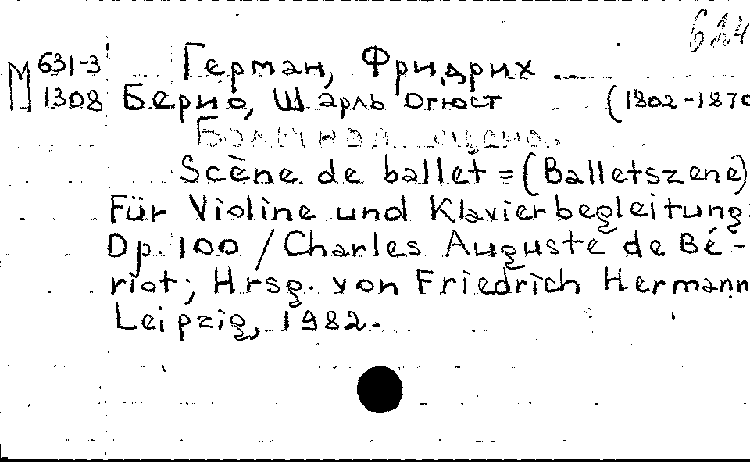 624
М 631-3 Герман, Фридрих
1308 Берио, Шарль Огюст (1802-1870
Балетная сцена.
Scène de ballet = (Balletszene)
Für Violine und Klavierbegleitung:
Op. 100 / Charles Auguste de Bé-
riot; Hrsg. von Friedrich Hermann
Leipzig, 1982.